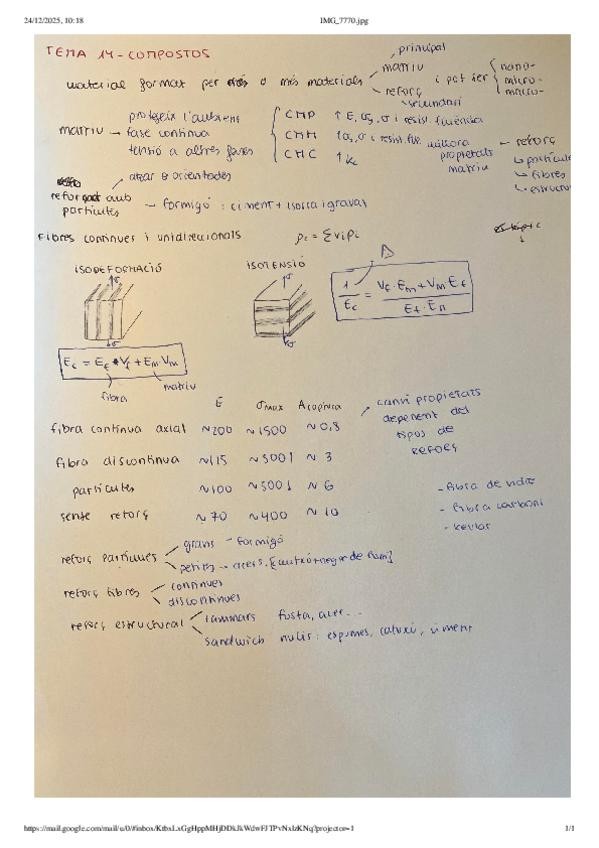 24/12/2025, 10:18
IMG_7770.jpg
TEMA 14 - COMPOSTOS
principal
material format per dos o més materials
matriu
reforç
secundari
i pot ser
nano-
micro-
macro-
matriu
protegeix l'ambient
fase contínua
tensió a altres fases
CMP ↑ E, σ, σ i resist. fluència
CMM ↑ σ, σ i resist. flu.
CMC ↑ Kc
millora propietats matriu
reforç
partícules
fibres
estructu
reforçat amb partícules
atzar o orientades
formigó: ciment + sorra i graves
Fibres contínues i unidireccionals ρc = Σviρi
ISODEFORMACIÓ
ISOTENSIÓ
σ
σ
σ
σ
1/Ec = (Vf·Em + Vm Ef) / (Ef·Em)
Ec = Ef · Vf + Em Vm
fibra
matriu
E σmax A
fibra contínua axial ~200 ~1500 ~0,8
fibra discontinua ~115 ~500 ~3
partícules ~100 ~500 ~6
sense reforç ~70 ~400 ~10
canvi propietats
depenent del
tipus de
reforç
- fibra de vidre
- fibra carboni
- kevlar
reforç partícules
grans - formigó
petites - acers, [cautxú + negre de fum]
reforç fibres
contínues
discontínues
reforç estructural
laminars fusta, acer...
sandwich nuclis: espumes, cautxú, ciment
https://mail.google.com/mail/u/0/#inbox/KtbxLxGgHppMHjDDkJkWdwFJTPvNxlzKNq?projector=1
1/1